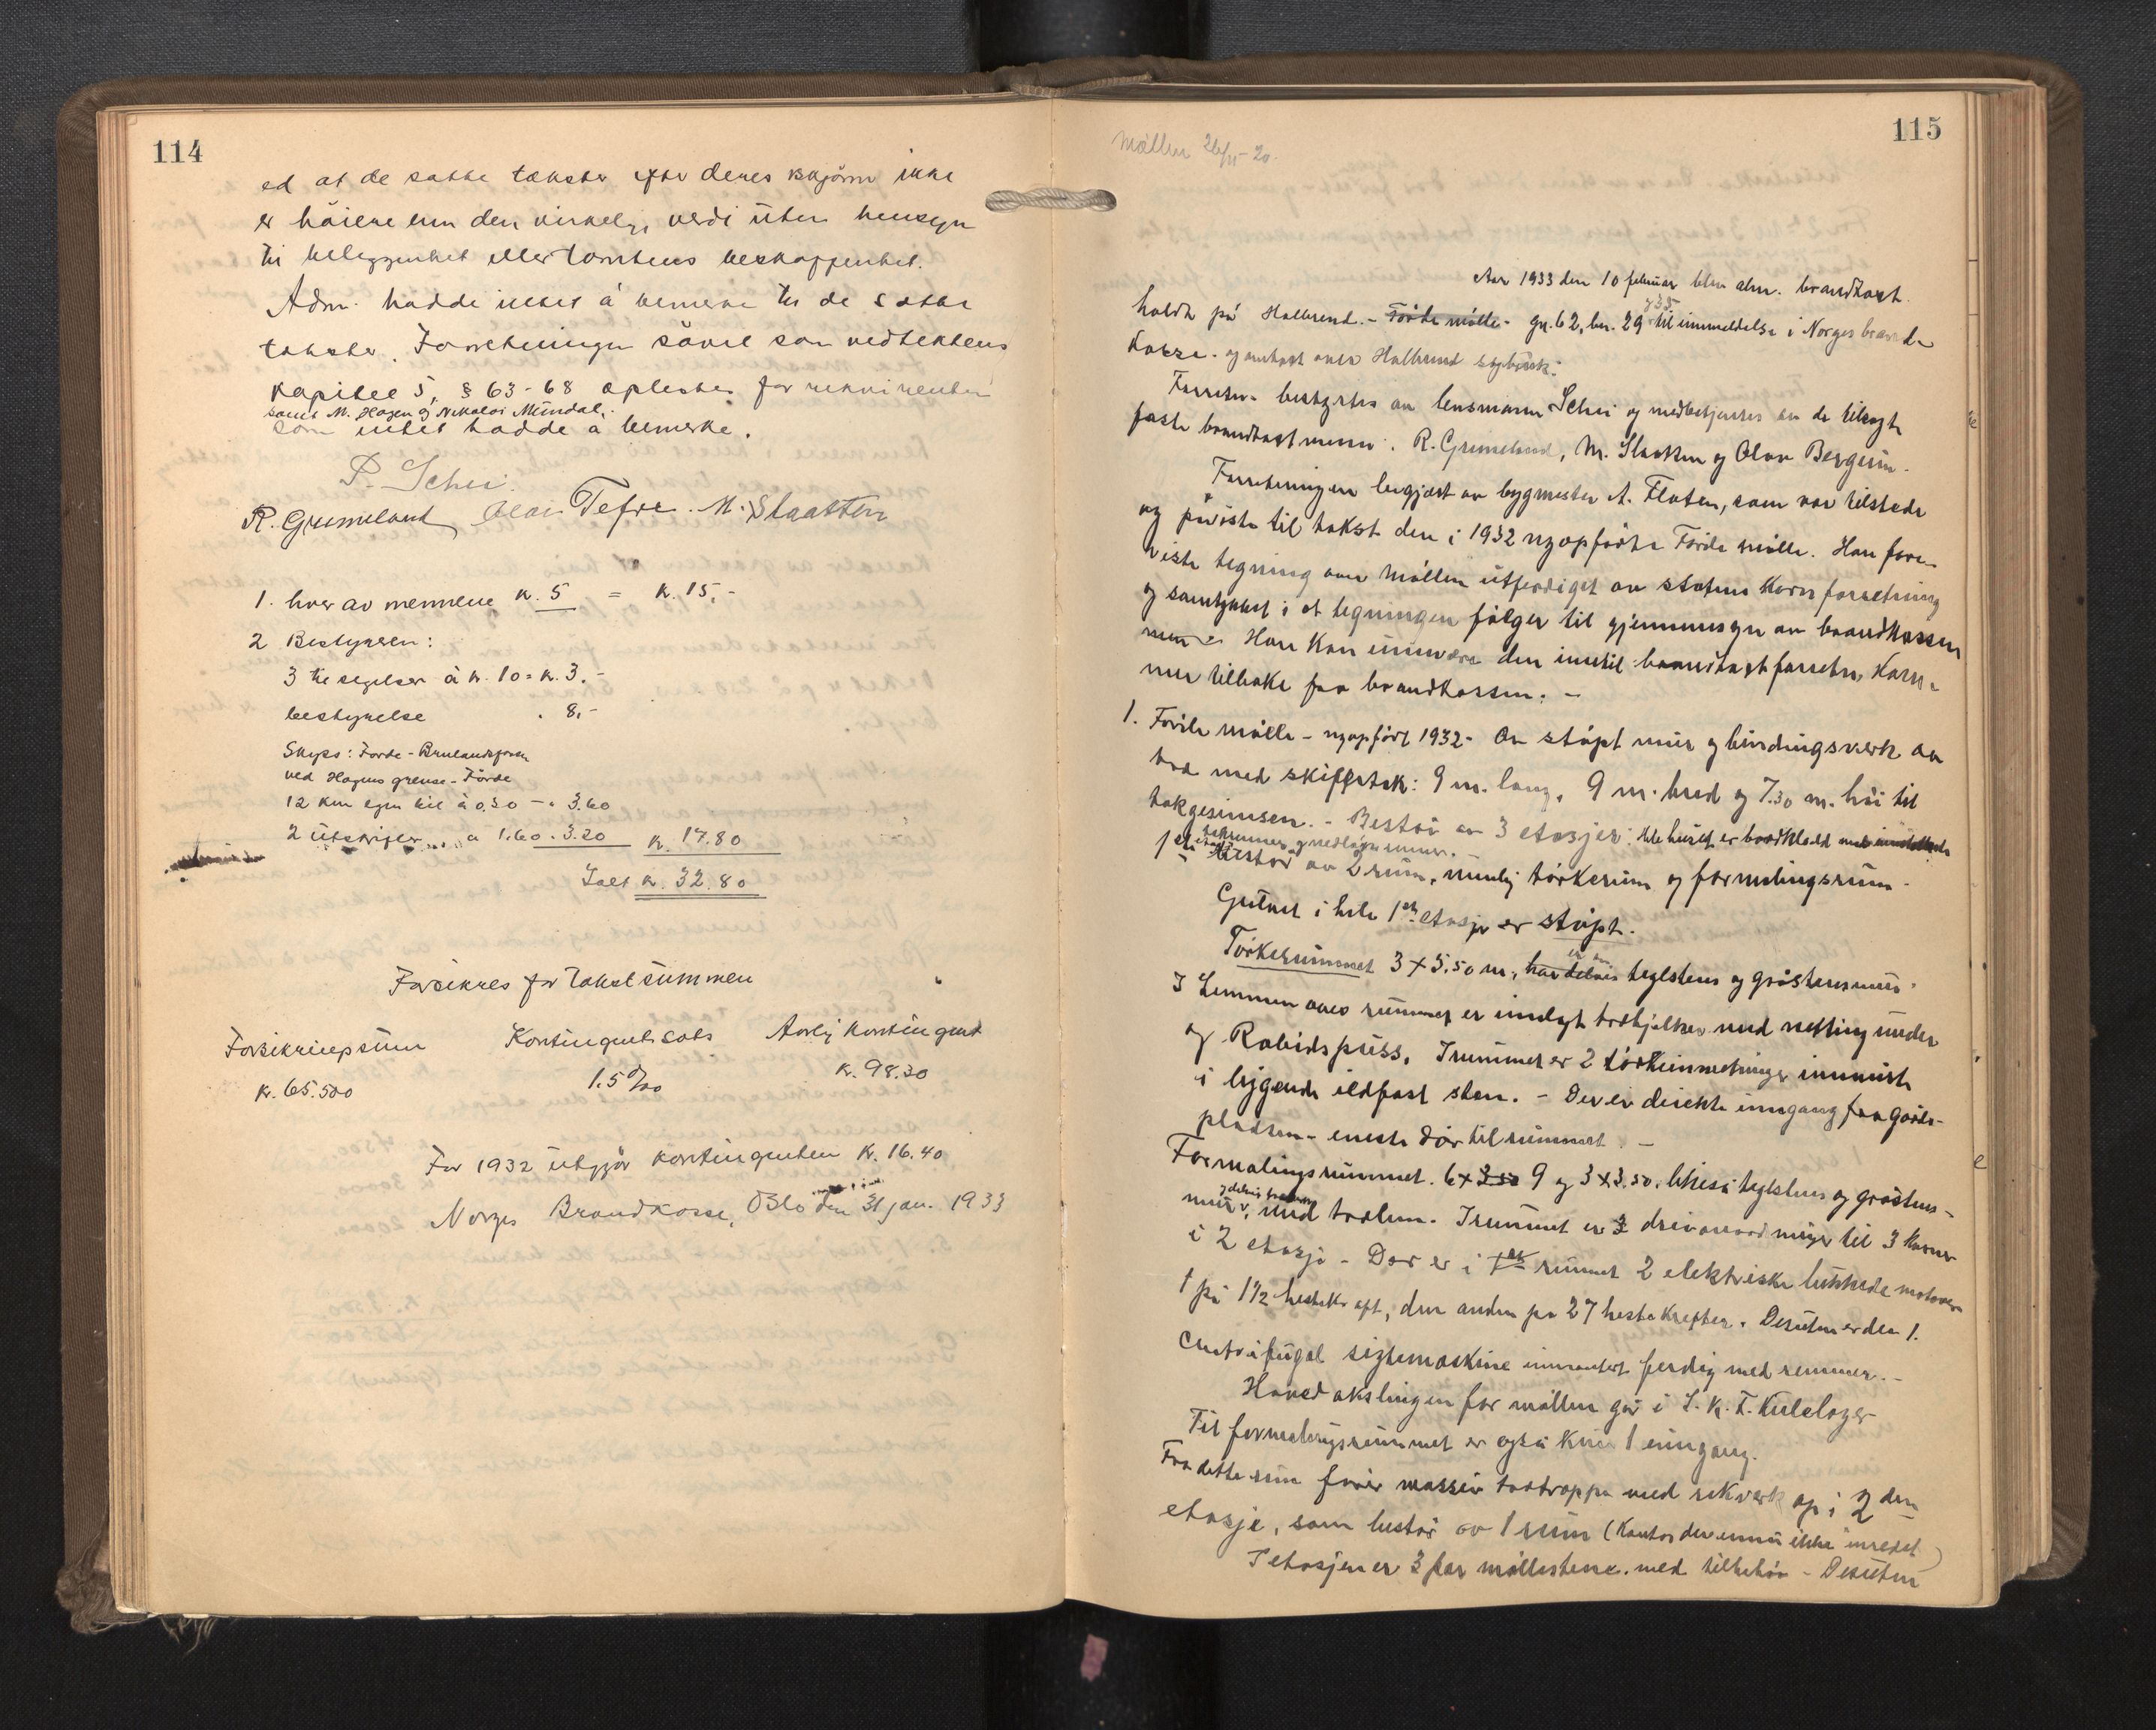 114
ed at de satte takster efter deres skjönn ikke
er höiere enn den virkelige verdi uten hensyn
til beliggenhet eller tomtens beskaffenhet.
Adm. hadde intet å bemerke til de satte
takster. Forretningen såvel som vedtektens
kapitel 5, § 63-68 oplestes for rekvirenten
samt M. Hagen og Nikolai Mundal,
som intet hadde å bemerke.
P. Schei.
R. Grimeland Olai Tefre. M. Slaatten
1. hver av mennene kr. 5 = kr. 15,-
2 Bestyreren:
3 tilsigelser à kr. 10 = kr. 3.-
bestyrelse " 8,-
Skyss: Förde - Brulandsfossen
ved Hagens grense - Förde
12 km egen bil à 0,30 - " 3.60
2 utskrifter à 1.60 . 3.20 kr. 17.80
Ialt kr. 32.80
Forsikres for takstsummen
Forsikringssum Kontingentsats Aarlig kontingent
kr. 65.500 1.5 ‰ kr. 98.30
For 1932 utgjör kontingenten kr. 16.40
Norges Brandkasse, Oslo den 31 jan. 1933
115
Möllen
Aar 1933 den 10 februar blev alm. brandtakst
holdt på Halbrend. - Förde mölle - gn. 62, bn. 29 og 35 til innmeldelse i Norges brand
kasse. og omtakst over Halbrend sagbruk:
Forretn. bestyrtes av lensmann Schei og medbetjentes av de tilsagte
faste brandtakstmenn: R. Grimeland, M. Slaatten og Olav Bergum.
Forretningen begjært av bygmester A. Flaten, som var tilstede
og påviste til takst den i 1932 nyopförte Förde mölle. Han fore-
viste tegning over Möllen utferdiget av statens Kornforretning
og samtykket i at tegningen fölger til gjennemsyn av brandkassen
men Han kan unnvære den inntil brandtakstforretn. kom-
mer tilbake fra brandkassen. -
1. Förde mölle - nyopfört 1932 - Av stöpt mur og bindingsverk av
tre med skiffertak: 9 m. lang, 9 m. bred og 7.30 m. höi til
takgesimsen. - Består av 3 etasjer: Hele huset er bordkledd
1ste etasje bestor av 2 rum, nemlig törkerum og formalingsrum -
Gulvet i hele 1ste etasje er stöpt.
Törkerummet 3 x 5.50 m, er av teglstens og gråstensmur.
I Lemmen over rummet er innlagt trebjelker med netting under
og Rabidspuss. I rummet er 2 törkeinnretninger innmurte
i liggende ildfast sten. - Der er direkte inngang fra gårds-
plassen - eneste dör til rummet -
Formalingsrummet. 6 x 9 og 3 x 3.50. likeså teglstens og gråstens-
mur og delvis med trelem. I rummet er 3 til 3 kverner
i 2 etasje - Der er i rummet 2 elektriske lukkede motorer
1 på 1½ hestekraft, den anden på 27 hestekrefter. Desuten er der 1.
Centrifugal sigtemaskine innmontert ferdig med remmer. -
Hovedakslingen for möllen går i S.K.F. Kulelager
Til formalingsrummet er også kun 1 inngang.
Fra dette rum förer massiv tretrappe med rekkverk op i 2den
etasje, som består av 1 rum (Kontor der ennu ikke innredet)
I etasjen er 3 par möllestene. med tilbehör - Desuten